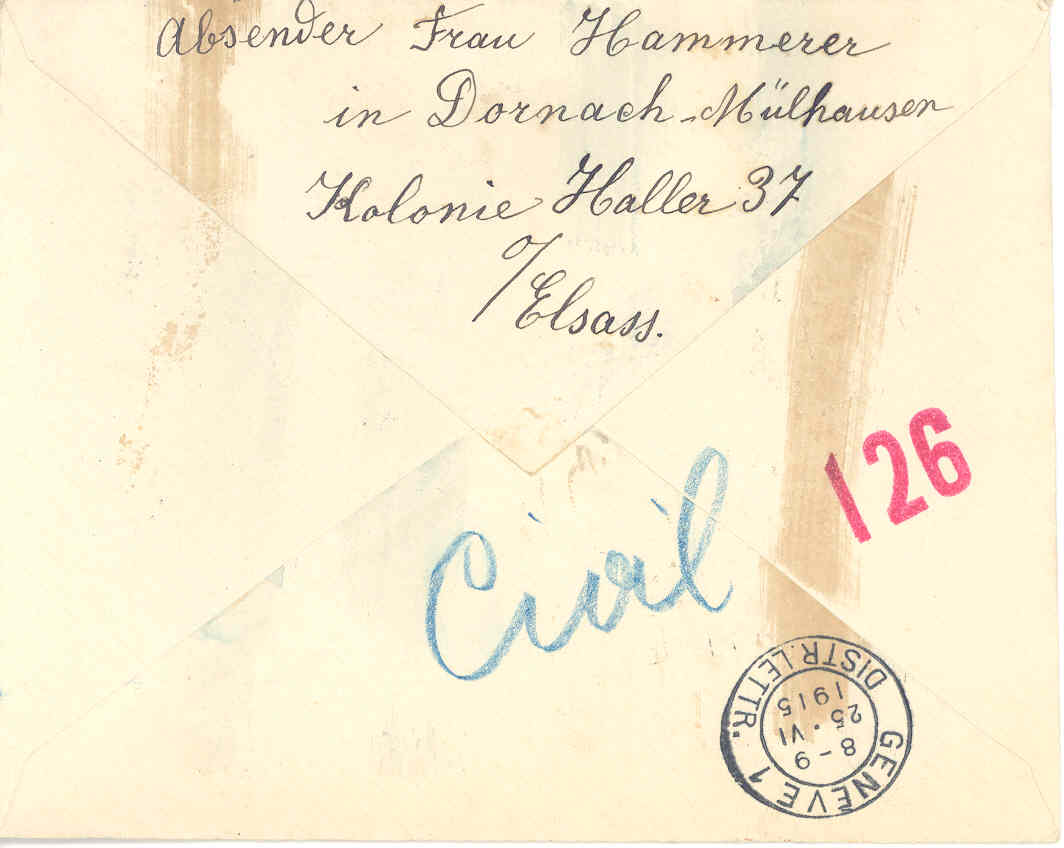 Absender Frau Hammerer
in Dornach-Mülhausen
Kolonie Haller 37
o/Elsass.
126
Civil
GENÈVE 1
8-9
25·VI
1915
DISTR. LETTR.